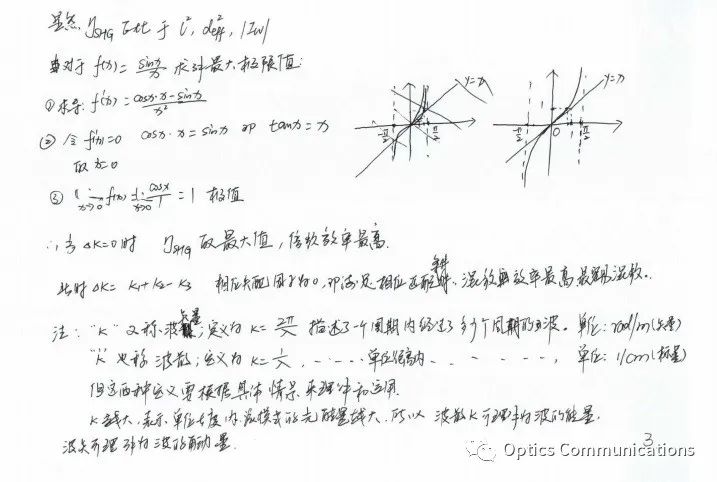 显然 η_SHG 正比于 l², d²eff, |Iω|
对于 f(x) = sinx/x 求斜最大极限值:
① 求导: f'(x) = (cosx·x - sinx)/x²
② 令 f'(x)=0 cosx·x = sinx 即 tanx = x
取 x=0
③ lim x→0 f(x) = lim x→0 cosx/1 = 1 极值
y=x
-π/2 0 π/2
y=x
-π/2 0 π/2
∴ 当 ΔK=0 时 η_SHG 取最大值, 倍频效率最高.
此时 ΔK = K₁+K₂-K₃ 相位失配因子为0, 即满足相位匹配条件, 混频效率最高
注: "K" 又称波矢量, 定义为 K = 2π/λ 描述了一个周期内经过了多少个周期的波。单位: rad/m (矢量)
"K" 也称波数, 定义为 K = 1/λ, ---- 单位长度内 - - - - - -, 单位: 1/cm (标量)
但这两种定义要根据具体情景来理解和运用
K越大, 表示单位长度内 光能量越大. 所以 波数K可理解为波的能量.
波矢可理解为波的动量.
3
Optics Communications